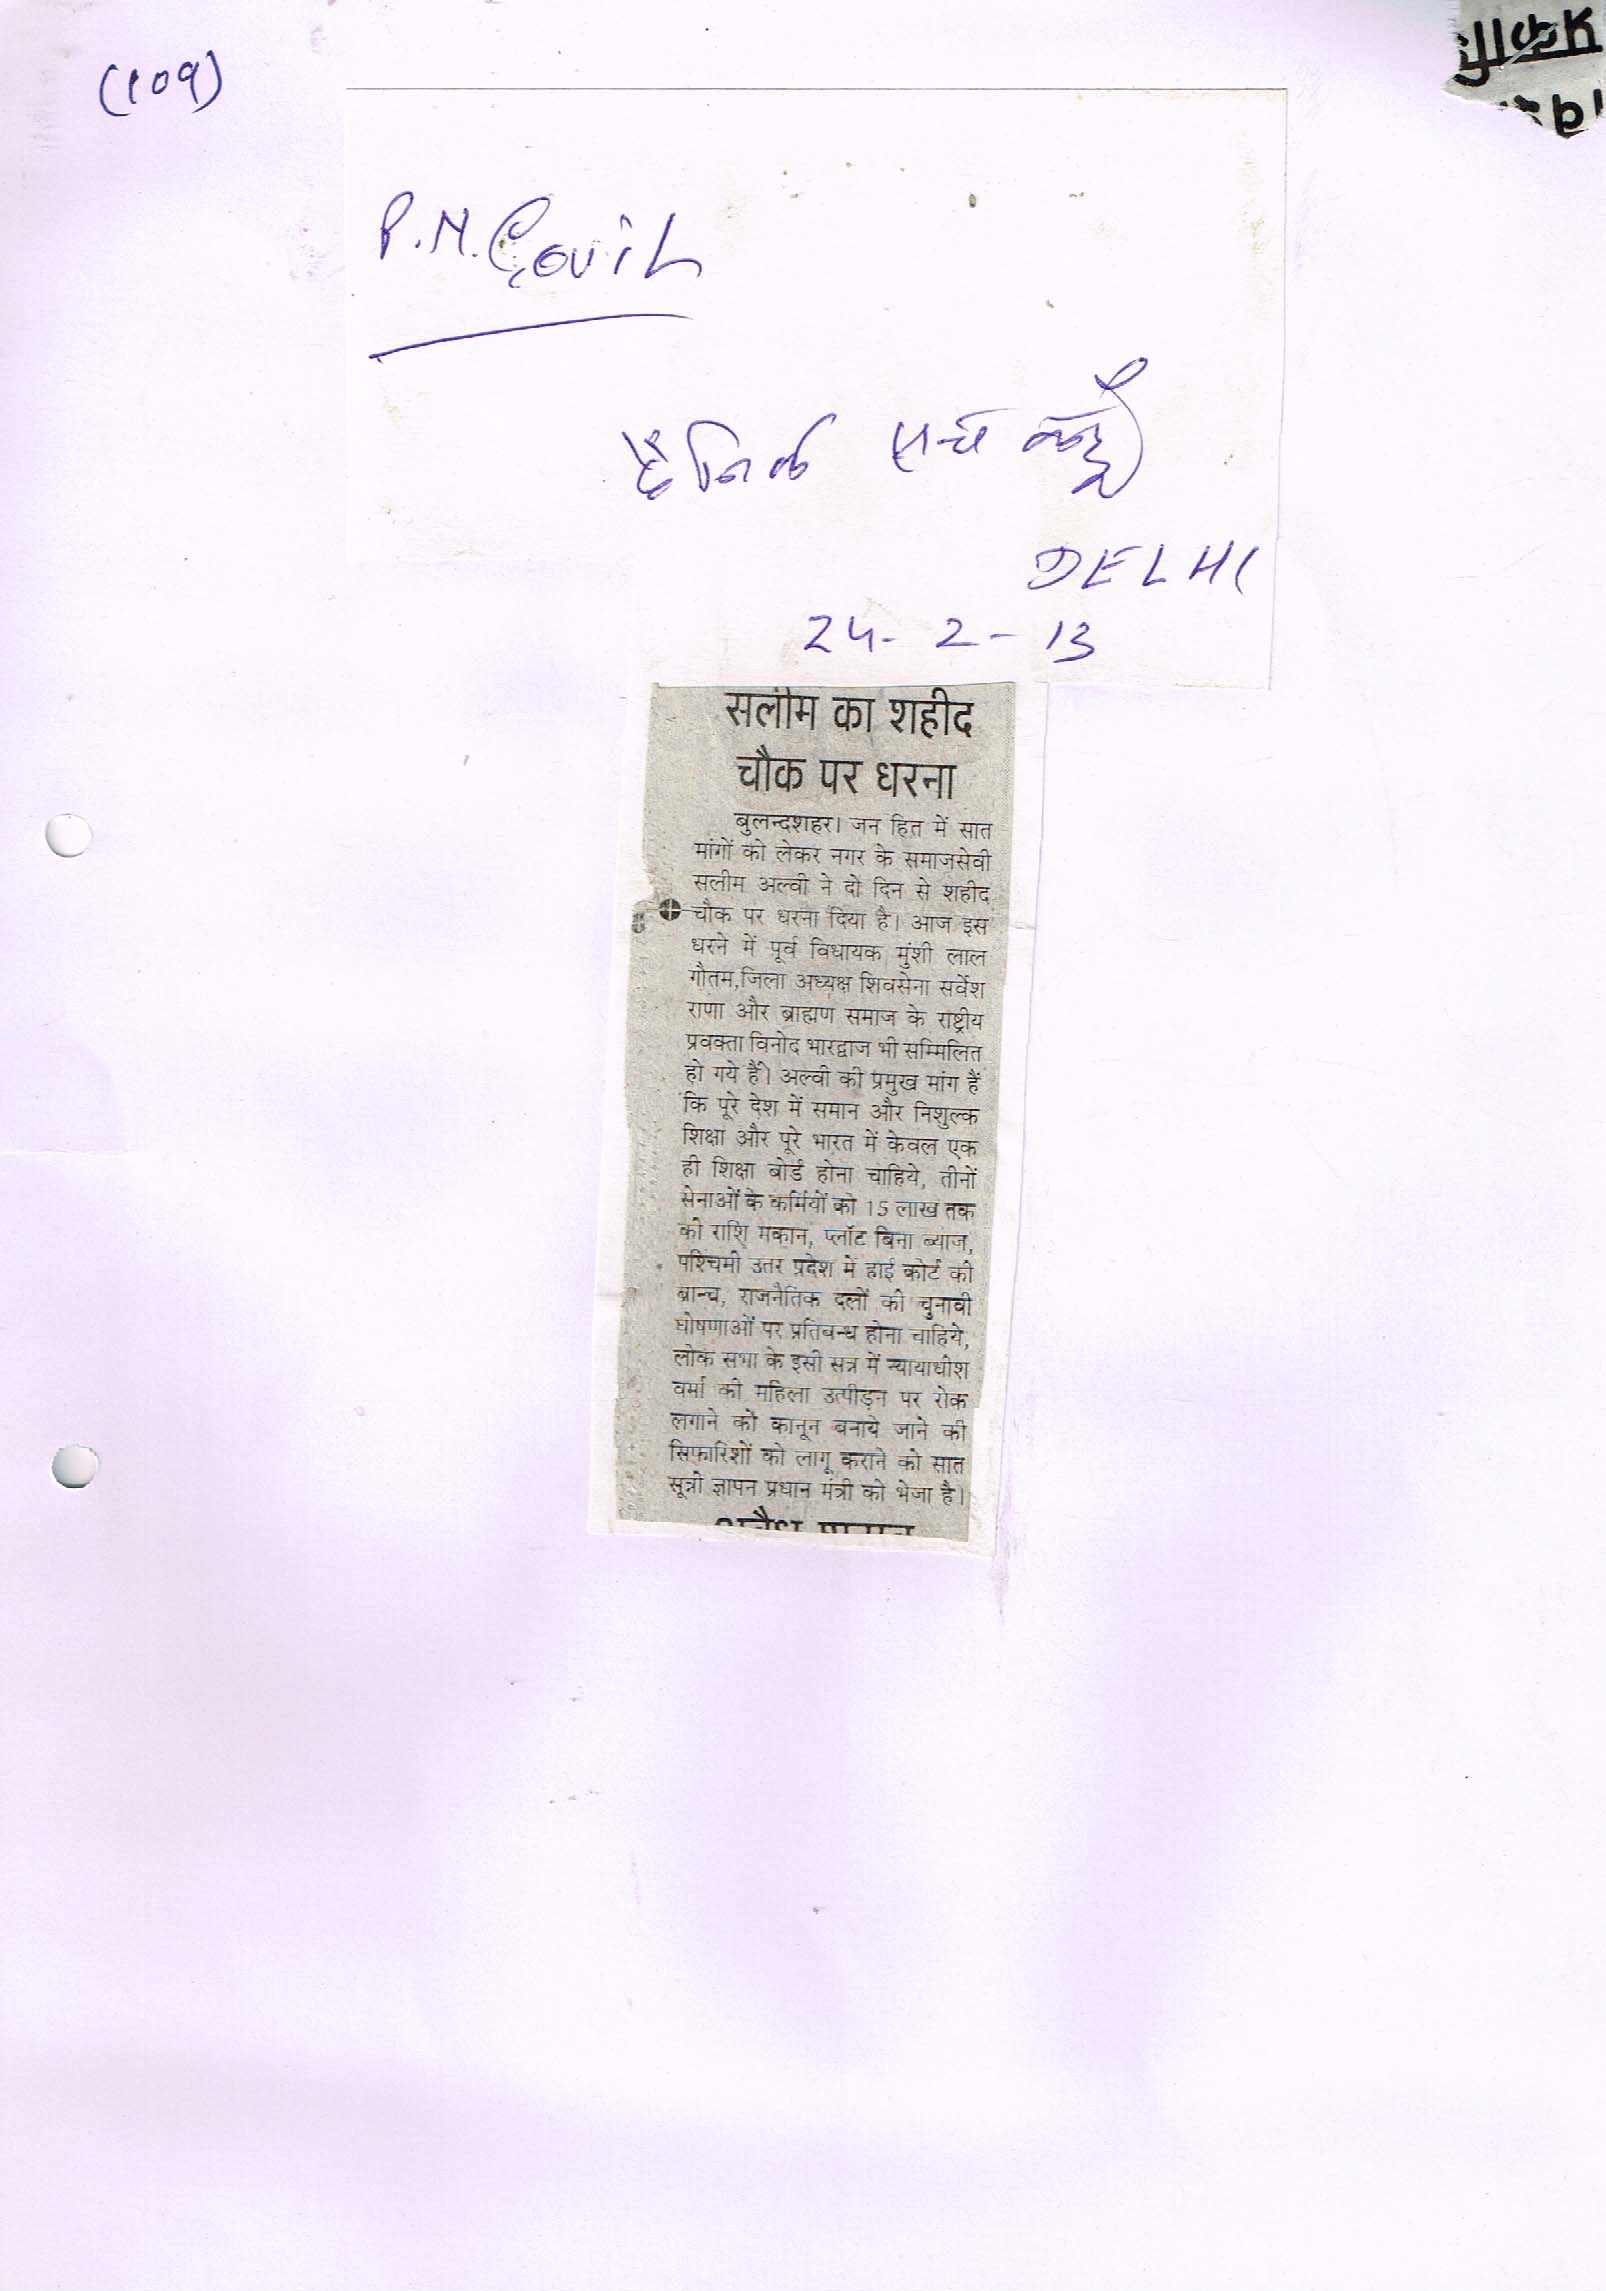 (109)
P.N. Covil
दैनिक सच कहूँ
DELHI
24-2-13
सलीम का शहीद
चौक पर धरना
बुलन्दशहर। जन हित में सात
मांगों को लेकर नगर के समाजसेवी
सलीम अल्वी ने दो दिन से शहीद
चौक पर धरना दिया है। आज इस
धरने में पूर्व विधायक मुंशी लाल
गौतम,जिला अध्यक्ष शिवसेना सर्वेश
राणा और ब्राह्मण समाज के राष्ट्रीय
प्रवक्ता विनोद भारद्वाज भी सम्मिलित
हो गये हैं। अल्वी की प्रमुख मांग हैं
कि पूरे देश में समान और निशुल्क
शिक्षा और पूरे भारत में केवल एक
ही शिक्षा बोर्ड होना चाहिये, तीनों
सेनाओं के कर्मियों को 15 लाख तक
की राशि मकान, प्लॉट बिना ब्याज,
पश्चिमी उतर प्रदेश में हाई कोर्ट की
ब्रान्च, राजनैतिक दलों की चुनावी
घोषणाओं पर प्रतिबन्ध होना चाहिये,
लोक सभा के इसी सत्र में न्यायाधीश
वर्मा की महिला उत्पीड़न पर रोक
लगाने को कानून बनाये जाने की
सिफारिशों को लागू कराने को सात
सूत्री ज्ञापन प्रधान मंत्री को भेजा है।